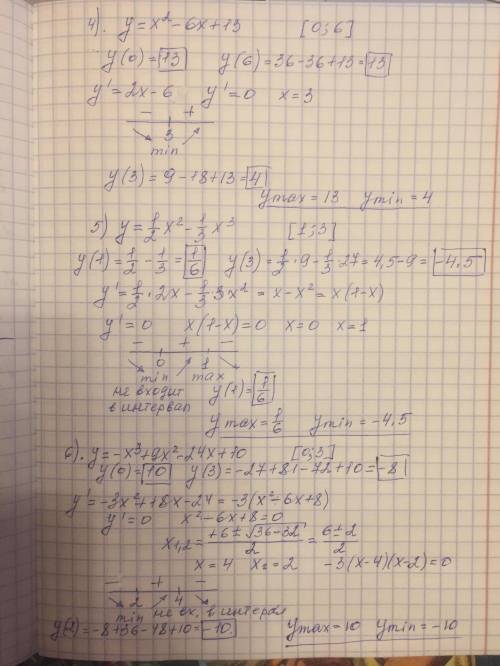 4). y = x² - 6x + 13 [0; 6]
y(0) = 13 y(6) = 36 - 36 + 13 = 13
y' = 2x - 6 y' = 0 x = 3
- +
3
min
y(3) = 9 - 18 + 13 = 4
ymax = 13 ymin = 4
5) y = 1/2 x² - 1/3 x³ [1; 3]
y(1) = 1/2 - 1/3 = 1/6 y(3) = 1/2 · 9 - 1/3 · 27 = 4,5 - 9 = -4,5
y' = 1/2 · 2x - 1/3 · 3x² = x - x² = x(1-x)
y' = 0 x(1-x) = 0 x = 0 x = 1
- + -
0 1
min max
не входит y(1) = 1/6
в интервал
ymax = 1/6 ymin = -4,5
6). y = -x³ + 9x² - 24x + 10 [0; 3]
y(0) = 10 y(3) = -27 + 81 - 72 + 10 = -8
y' = -3x² + 18x - 24 = -3(x² - 6x + 8)
y' = 0 x² - 6x + 8 = 0
x1,2 = +6 ± √36 - 32 / 2 = 6 ± 2 / 2
x = 4 x = 2 -3(x-4)(x-2) = 0
- + -
2 4
min не вх. в интервал
y(2) = -8 + 36 - 48 + 10 = -10 ymax = 10 ymin = -10